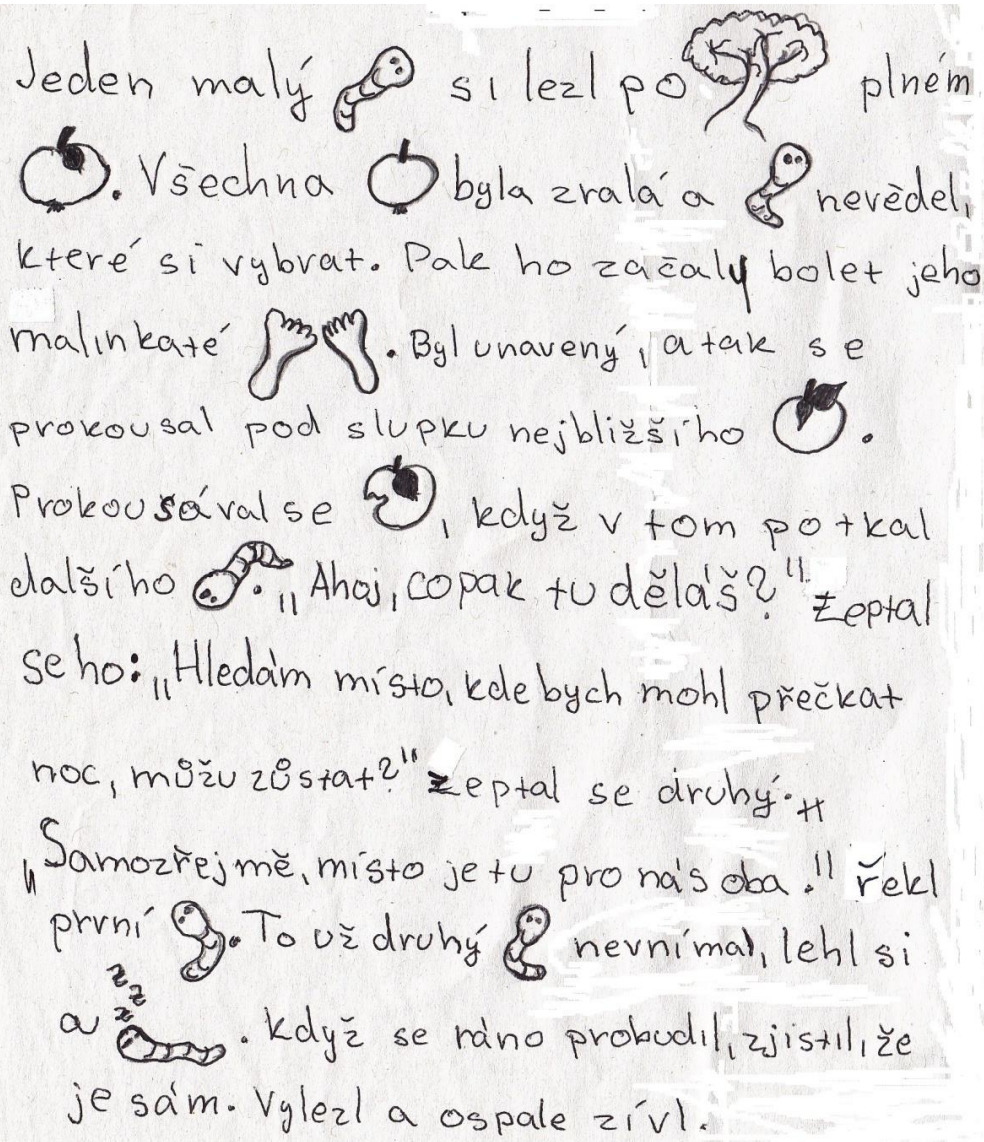 Jeden malý si lezl po plném
. Všechna byla zralá a nevěděl,
které si vybrat. Pak ho začaly bolet jeho
malinkaté . Byl unavený, a tak se
prokousal pod slupku nejbližšího .
Prokousával se , když v tom potkal
dalšího . „Ahoj, copak tu děláš?" zeptal
se ho: „Hledám místo, kde bych mohl přečkat
noc, můžu zůstat?" zeptal se druhý. „
„Samozřejmě, místo je tu pro nás oba." řekl
první . To už druhý nevnímal, lehl si
zzz
a . Když se ráno probudil, zjistil, že
je sám. Vylezl a ospale zívl.